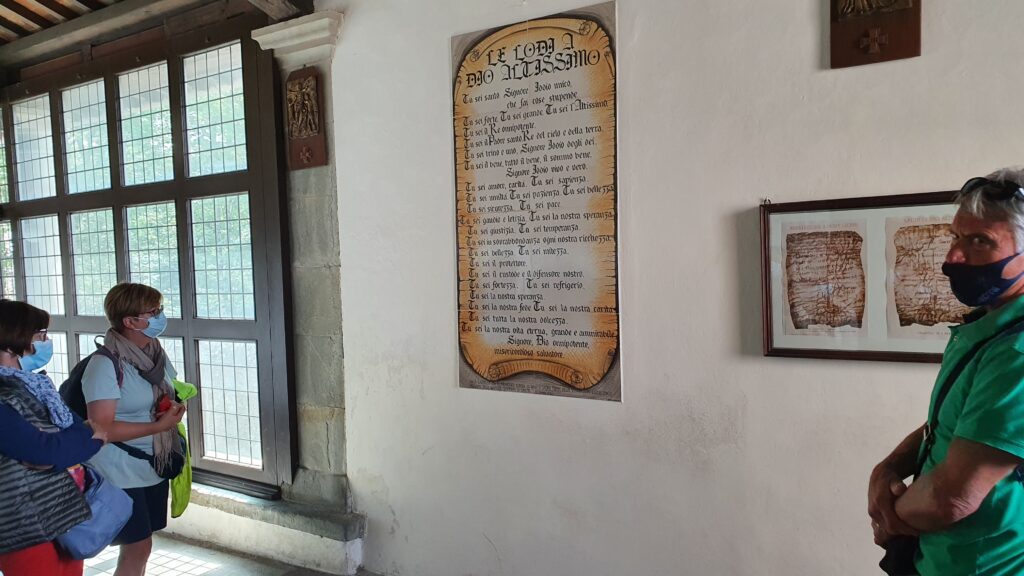 LE LODI A
DIO ALTISSIMO
Tu sei santo, Signore Iddio unico,
che fai cose stupende.
Tu sei forte. Tu sei grande. Tu sei l'Altissimo.
Tu sei il Re onnipotente.
Tu sei il Padre santo, Re del cielo e della terra.
Tu sei trino e uno, Signore Iddio degli dei.
Tu sei il bene, tutto il bene, il sommo bene,
Signore Iddio vivo e vero.
Tu sei amore, carita. Tu sei sapienza.
Tu sei umilta. Tu sei pazienza. Tu sei bellezza.
Tu sei sicurezza. Tu sei pace.
Tu sei gaudio e letizia. Tu sei la nostra speranza.
Tu sei giustizia. Tu sei temperanza.
Tu sei in sovrabbondanza ogni nostra ricchezza.
Tu sei bellezza. Tu sei mitezza.
Tu sei il protettore.
Tu sei il custode e il difensore nostro.
Tu sei fortezza. Tu sei refrigerio.
Tu sei la nostra speranza.
Tu sei la nostra fede. Tu sei la nostra carita.
Tu sei tutta la nostra dolcezza.
Tu sei la nostra vita eterna, grande e ammirabile
Signore, Dio onnipotente,
misericordioso salvatore.